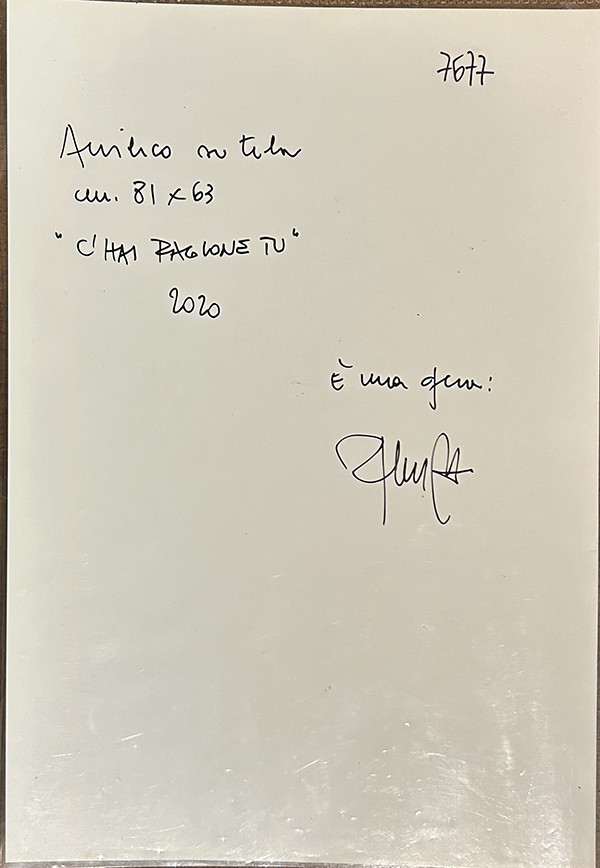 7677
Acrilico su tela
cm. 81 x 63
"C'HAI RAGIONE TU"
2020
È una opera: